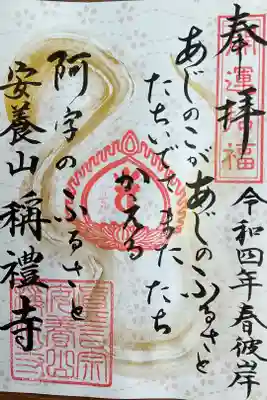 奉拝
開運福
令和四年春彼岸
あじのこがあじのふるさと
たちいでてまたたち
かえる
阿字のふるさと
安養山稱禮寺
真言宗
安養山
稱禮寺